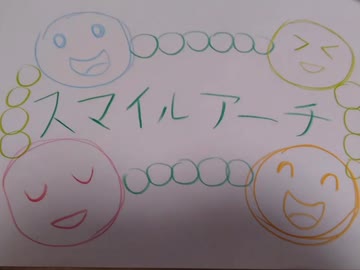 スマイルアーチ